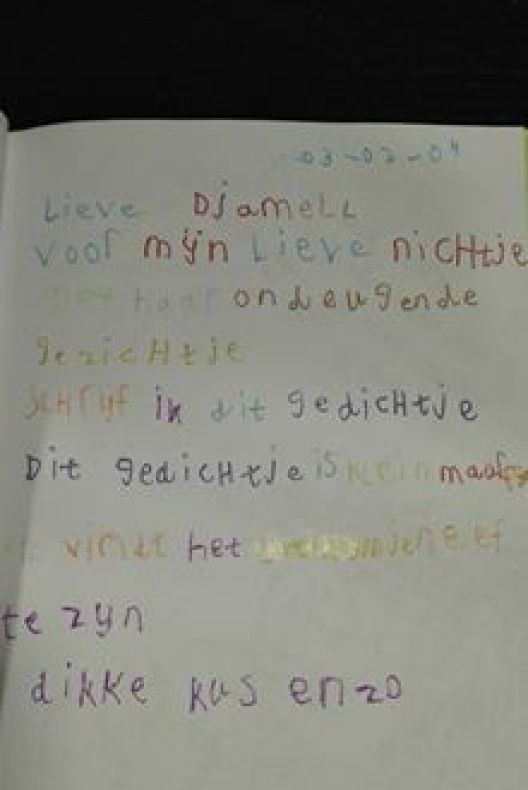 03-02-04
Lieve Djamell
voor mijn Lieve nichtje
met haar ondeugende
gezichtje
schrijf ik dit gedichtje
Dit gedichtje is klein maar
vindt het je neef
te zyn
dikke kus enzo